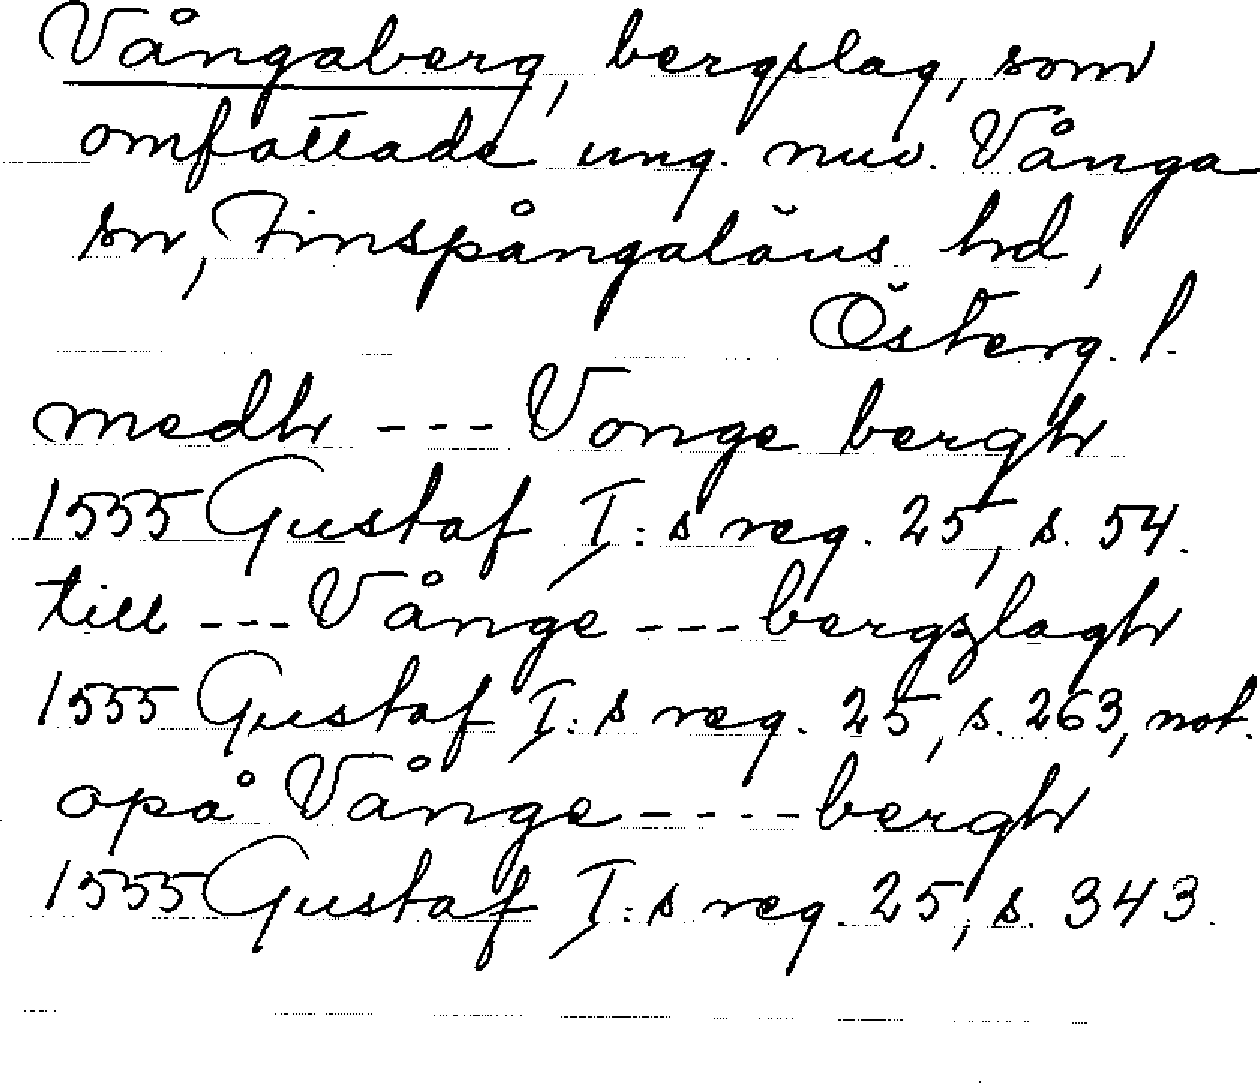 Vångaberg, bergslag, som
omfattade ung. nuv. Vånga
sn, Finspångaläns hd,
Österg. l.
medh --- Vonge bergh
1555 Gustaf I:s reg. 25, s. 54.
till --- Vånge --- bergzlagh
1555 Gustaf I:s reg. 25, s. 263, not.
opå Vånge ---- bergh
1555 Gustaf I:s reg. 25, s. 343.